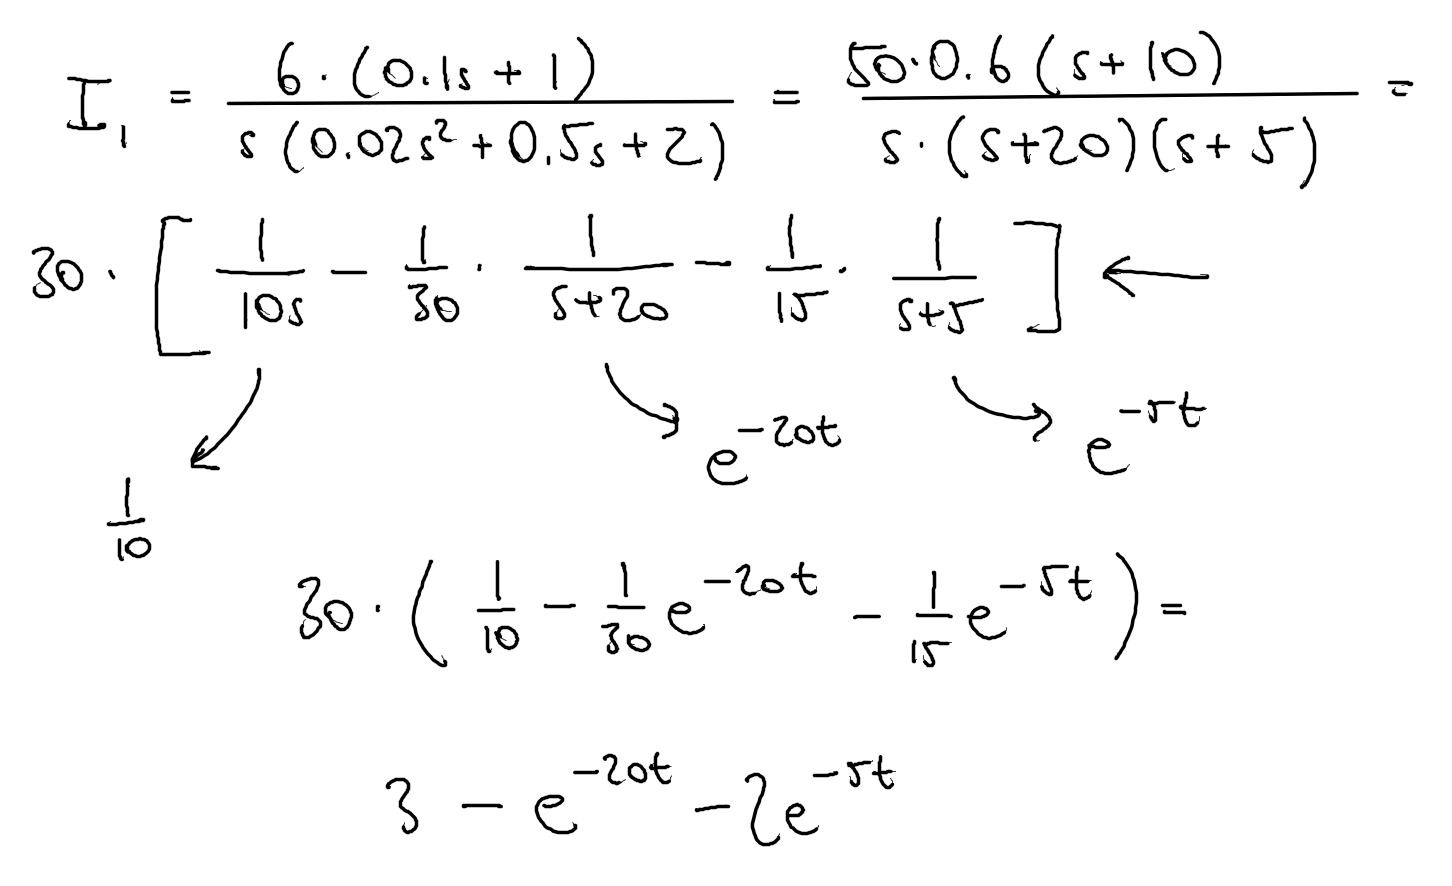 I₁ = 6·(0.1s + 1) / s(0.02s² + 0.5s + 2) = 50·0.6(s + 10) / s·(s+20)(s+5) =
30 · [ 1/10s − 1/30 · 1/s+20 − 1/15 · 1/s+5 ] ←
1/10 e^−20t e^−5t
30 · ( 1/10 − 1/30 e^−20t − 1/15 e^−5t ) =
3 − e^−20t − 2e^−5t